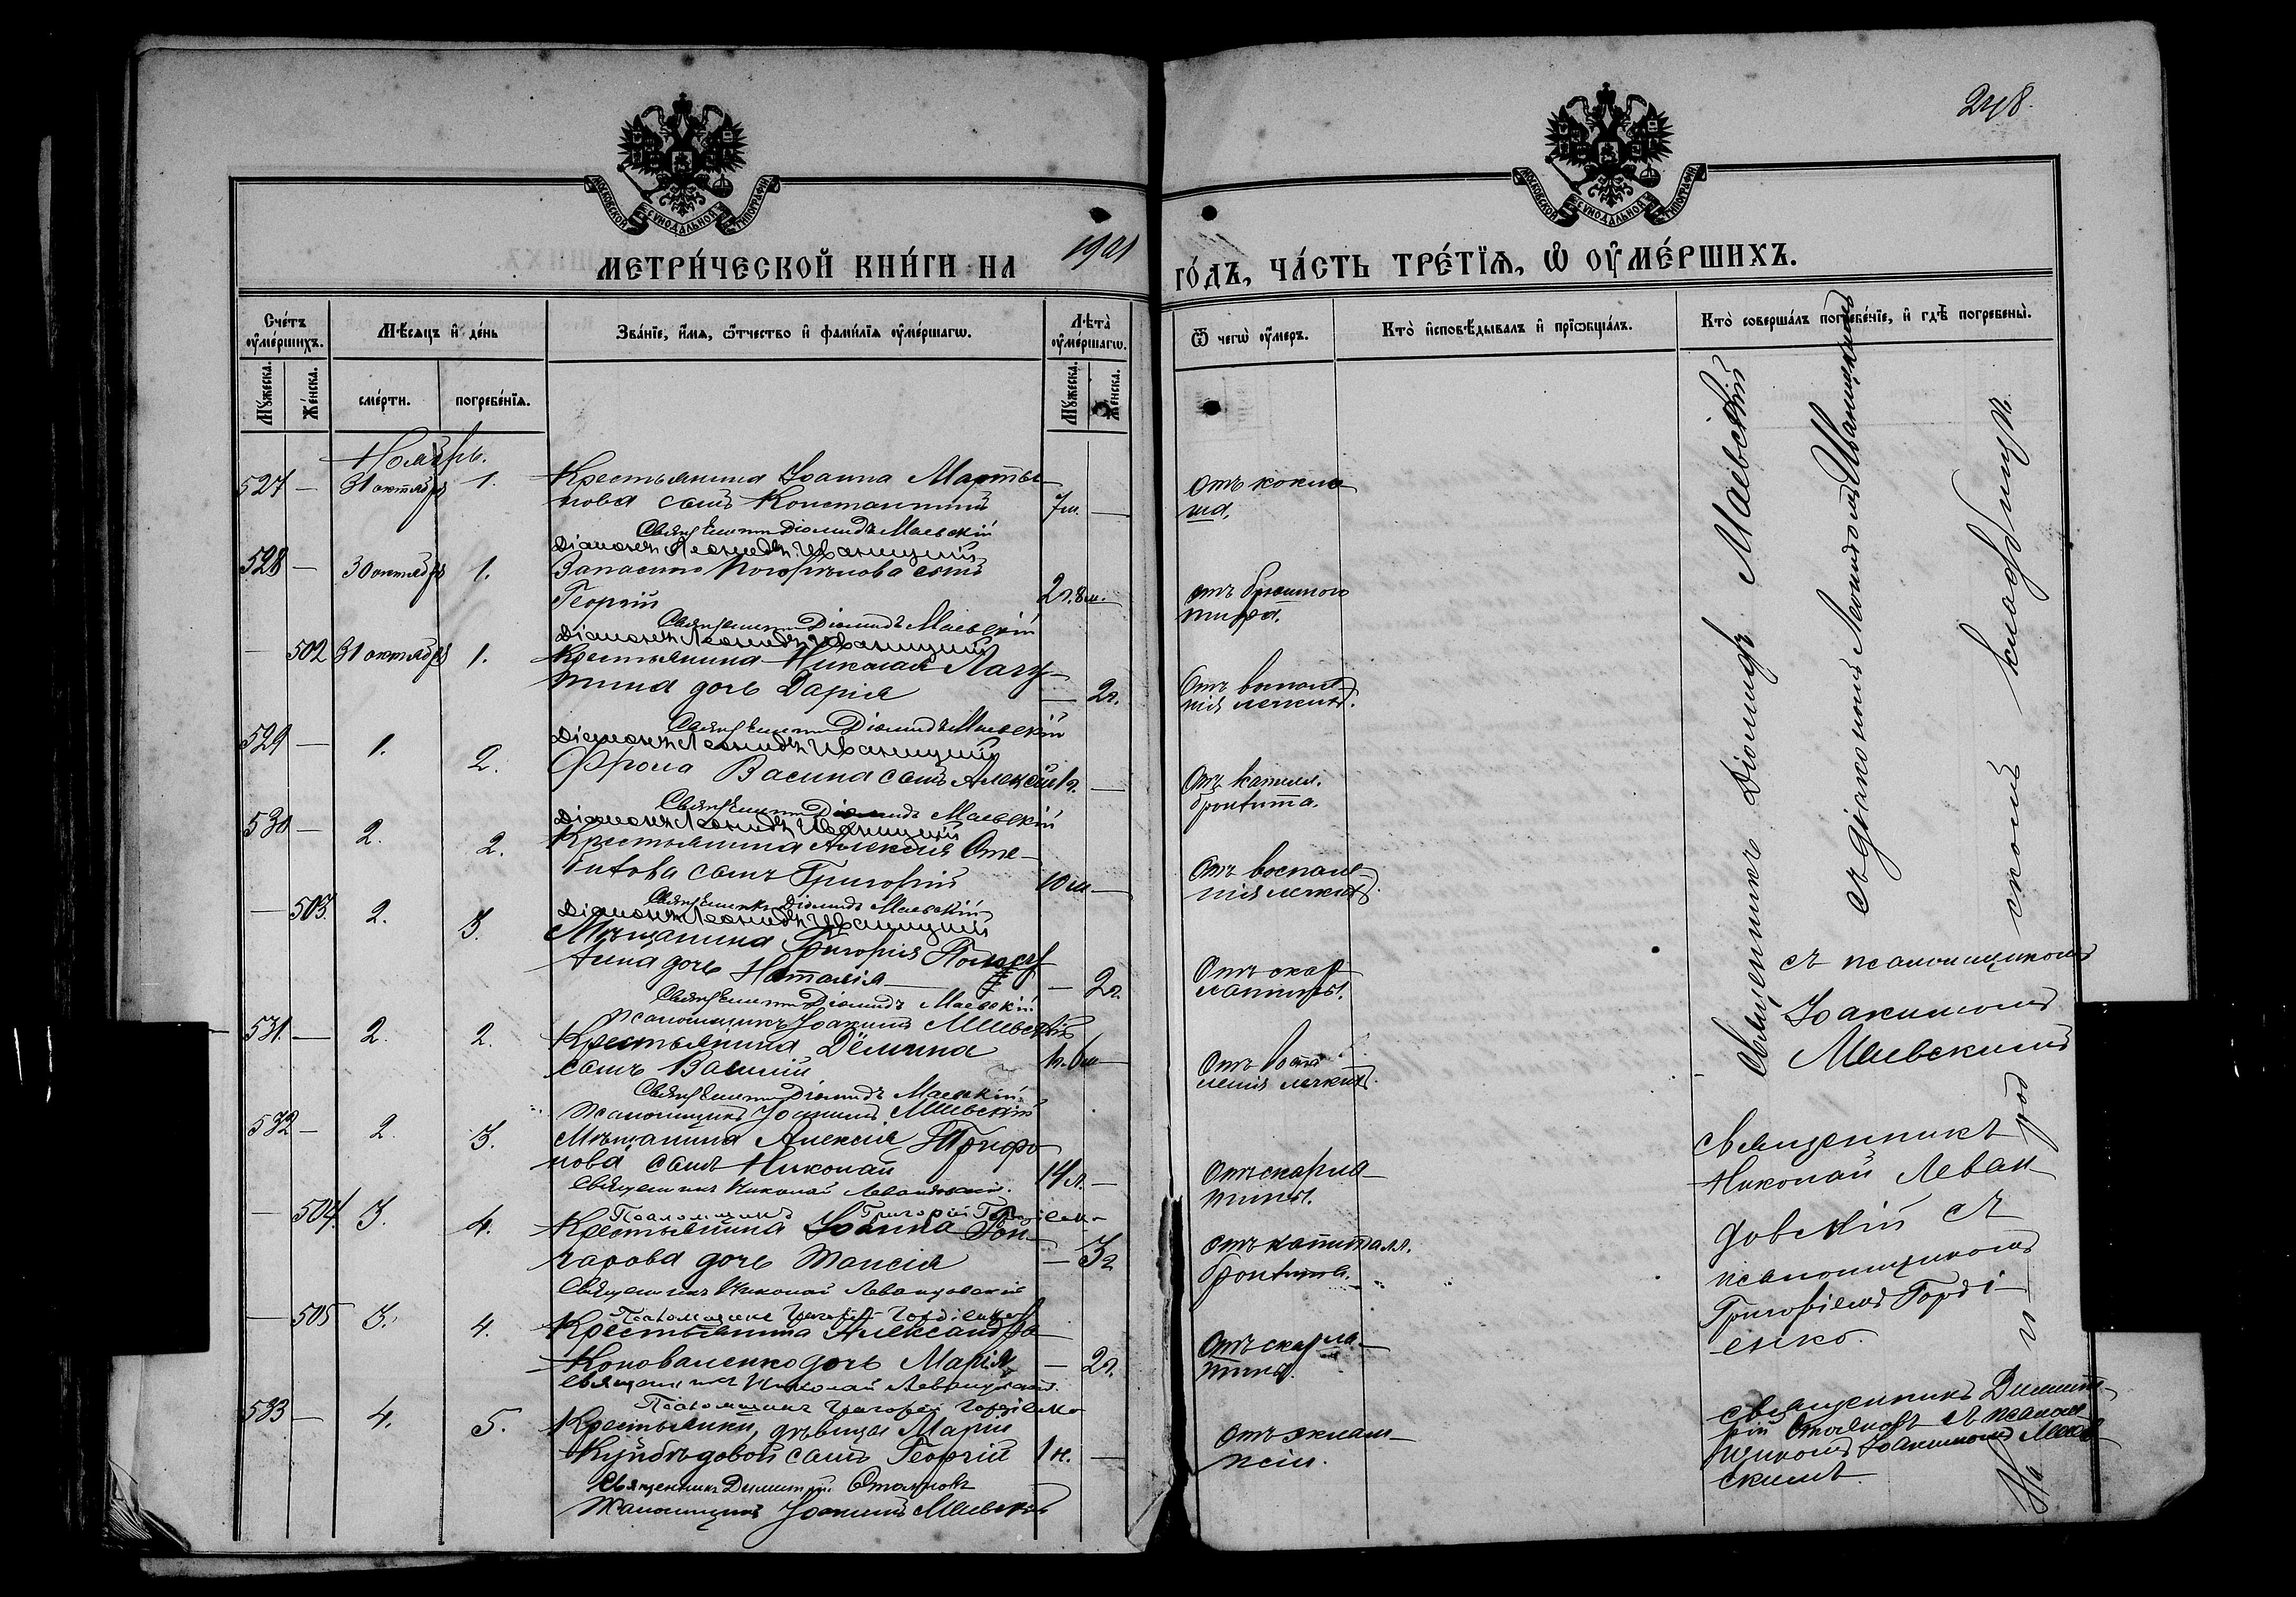 248.
МОСКОВСКОЙ СУНОДАЛЬНОЙ ТИПОГРАФІИ
МОСКОВСКОЙ СУНОДАЛЬНОЙ ТИПОГРАФІИ
МЕТРИ́ЧЕСКОЙ КНИ́ГИ НА 1901
ГО́ДЪ, ЧА́СТЬ ТРЕ́ТЇѦ, Ѿ ОУМЕ́РШИХЪ.
Сче́тъ оуме́ршихъ.
Мѣ́сяцъ и де́нь
Зва́нїе, и́мя, о́тчество и фами́лїя оуме́ршагѡ.
Лѣта̀ оуме́ршагѡ.
Ѿ чегѡ̀ оу́меръ.
Кто̀ исповѣ́дывалъ и прїѡбща́лъ.
Кто̀ соверша́лъ погребе́нїе, и гдѣ̀ погребены̀.
Му́жеска.
Же́нска.
сме́рти.
погребе́нїя.
Му́жеска.
Же́нска.
Ноябрь.
527 — 31 октября 1. Крестьянина Іоанна Марты-
нова сынъ Константинъ 7 м. —
Отъ коклю
ша.
Священникъ Діомидъ Маевскій
Діаконъ Леонидъ Иваницкій
528 — 30 октября 1. Запаснаго сынъ
Георгій 2 г. 8 м. —
отъ брюшного
тифа.
Священникъ Діомидъ Маевскій
Діаконъ Леонидъ Иваницкій
— 502 31 октября 1. Крестьянина Николая Лагу-
тина дочь Дарія — 2 г.
Отъ воспале-
нія легкихъ.
Священникъ Діомидъ Маевскій
Діаконъ Леонидъ Иваницкій
529 — 1. 2. Фрола Васина сынъ Алексѣй 1 г. —
Отъ капилл.
бронхита.
Священникъ Діомидъ Маевскій
Діаконъ Леонидъ Иваницкій
530 — 2. 2. Крестьянина Алексія
сынъ Григорій 10 м. —
Отъ воспале-
нія легкихъ.
Священникъ Діомидъ Маевскій
Діаконъ Леонидъ Иваницкій
— 503. 2. 3. Мѣщанина Григорія
дочь Наталія — 2 г.
Отъ скар
латины.
Священникъ Діомидъ Маевскій
Псаломщикъ Іоакимъ Маевскій
531. — 2. 2. Крестьянина Дёмина
сынъ Василій 1 г. 6 м —
Отъ воспа
ленія легкихъ.
Священникъ Діомидъ Маевскій
Псаломщикъ Іоакимъ Маевскій
532 — 2. 3. Мѣщанина Алексія Трифо-
нова сынъ Николай 14 л. —
Отъ скарла-
тины.
Священникъ Николай Левандовскій.
Псаломщикъ Григорій Гордіенко
— 504 3. 4. Крестьянина Іоанна Гон-
чарова дочь Таисія — 3 г
отъ капиталл.
бронхита.
Священникъ Николай Левандовскій
Псаломщикъ Григорій Гордіенко
— 505 3. 4. Крестьянина Александра
Коноваленко дочь Марія — 2 г.
Отъ скарла-
тины.
Священникъ Николай Левандовскій.
Псаломщикъ Григорій Гордіенко
533 — 4. 5. Крестьянки, дѣвицы Маріи
сынъ Георгій 1 н. —
Отъ эклам-
псіи.
Священникъ Димитрій
Псаломщикъ Іоакимъ Маевскій
Священникъ Діомидъ Маевскій
съ діакономъ Леонидомъ Иваницкимъ
съ псаломщикомъ
Іоакимомъ
Маевскимъ
священникъ
Николай Леван
довскій съ
псаломщикомъ
Григоріемъ Горді-
енко.
священникъ Димит-
рій съ псалом-
щикомъ Іоакимомъ Маев-
скимъ
На
скомъ кладбищѣ.